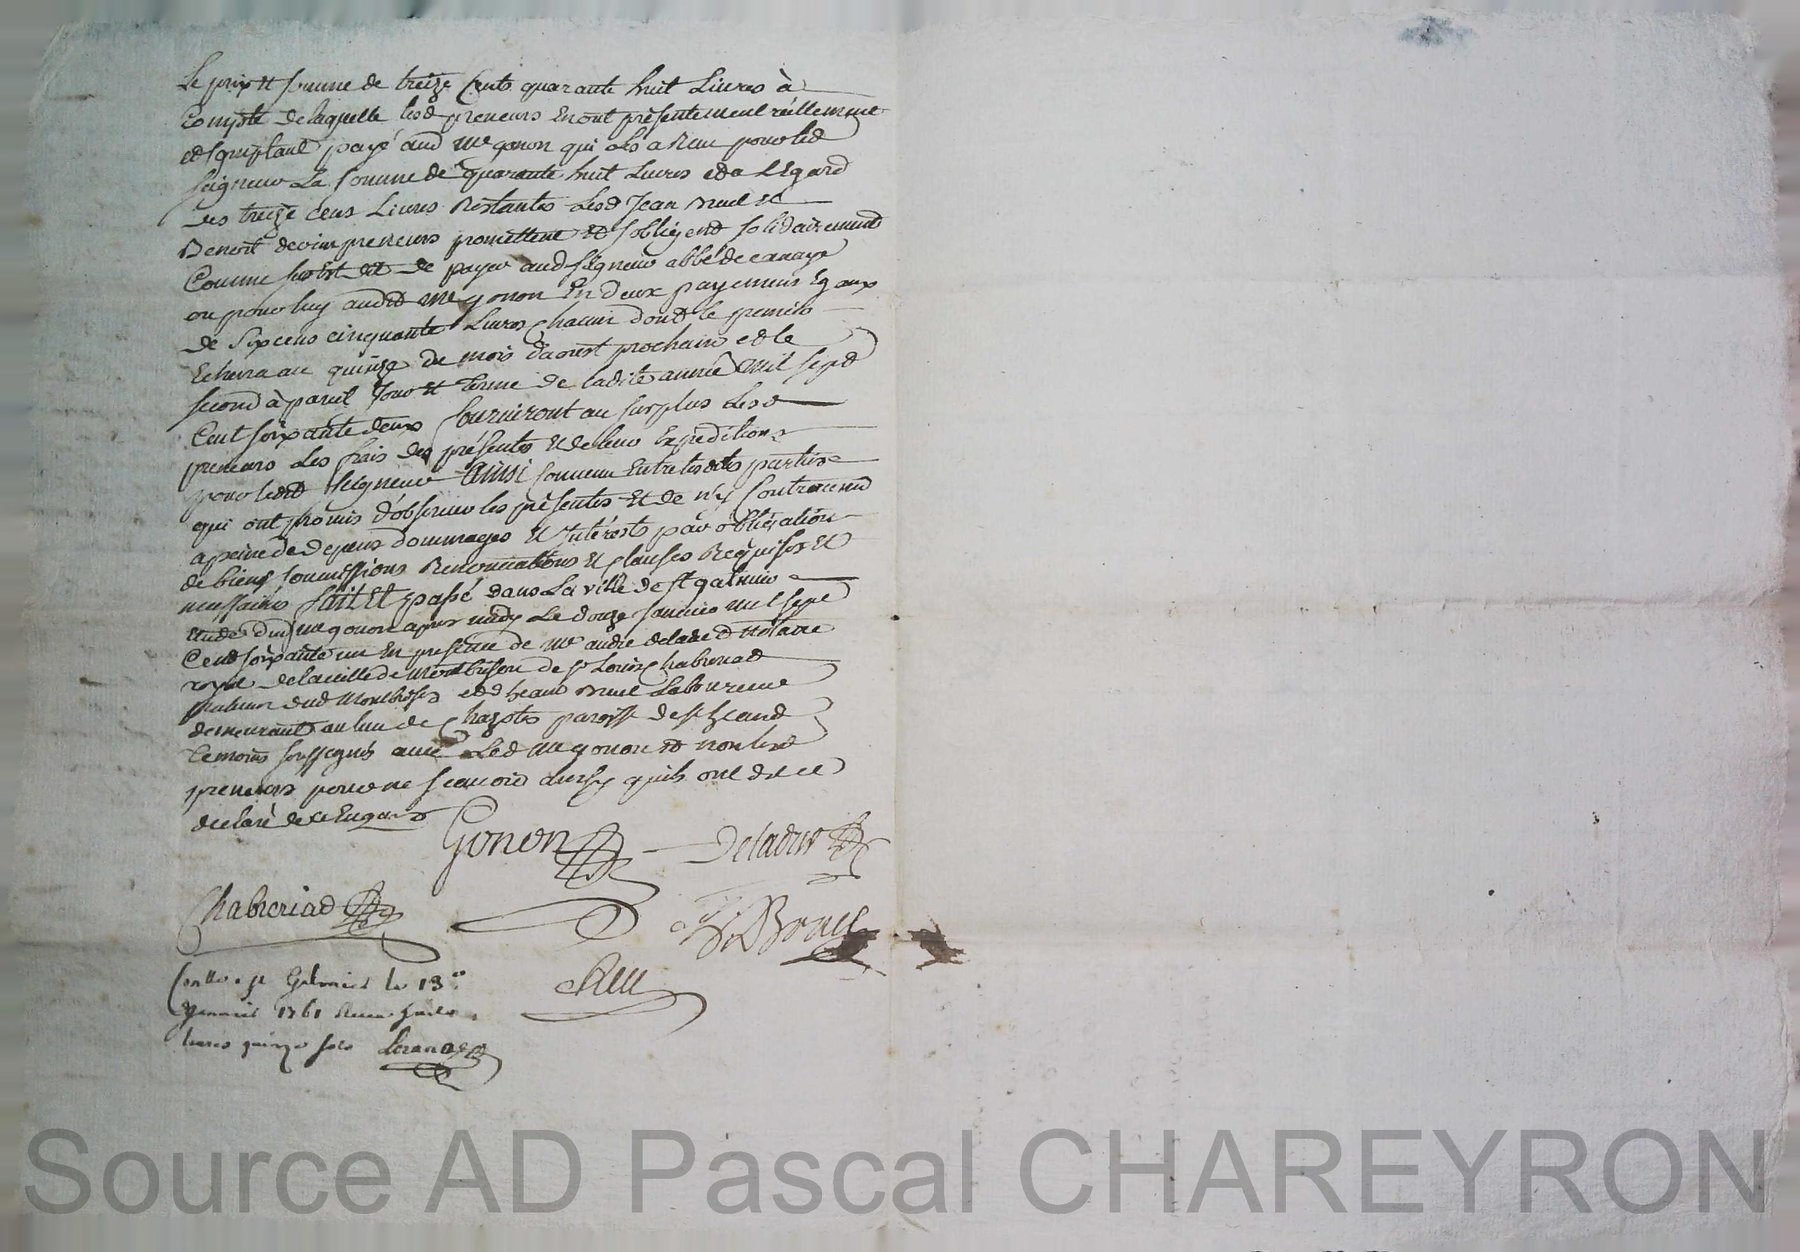 Le prix et somme de treize Cents quarante huit Livres à
Compte de laquelle lesd preneurs En ont présentement réellement
et Comptant payé aud Me gonon qui a Reçu pour led
seigneur La somme de quarante huit Livres et a L'Egard
des treize cens Livres Restantes Lesd Jean Bruel et
Benoit preneurs promettent et s'obligent solidairement
Comme sus Est dit de payer aud seigneur abbé de canaye
ou pour luy audit Me gonon En deux payemens Egaux
de six cens cinquante Livres Chacun dont le premier
Echerra au quinze de mois daoust prochain et le
second à pareil Jour et terme de ladite année mil sept
Cent soixante deux fourniront au surplus Lesd
preneurs Les frais des présentes et de leur Expedition
pour ledit seigneur ainsi Convenu Entre lesdites parties
qui ont promis d'observer les présentes et de n'y Contrevenir
a peine de depens dommages et Intérests par obligation
de biens soumissions Renonciations et clauses Requises et
necessaires fait et passé dans La ville de st galmier
Etude dud Me gonon apres midy Le douze Janvier mil sept
Cent soixante un En presence de Me andré deladret Notaire
royal de la ville de Montbrison de sr Louis Chabreriad
praticien dud Montbrison et d Jean Bruel Laboureur
demeurant au lieu de Chazots paroisse de
temoins soussignés avec Led Me gonon et non lesd
preneurs pour ne sçavoir ainsy quils ont dit et
declaré de ce Enquis
Gonon Deladret
Chabreriad J Bruel
Conllé a st Galmier le 13e
Janvier 1761 Reçu huit
livres quinze sols